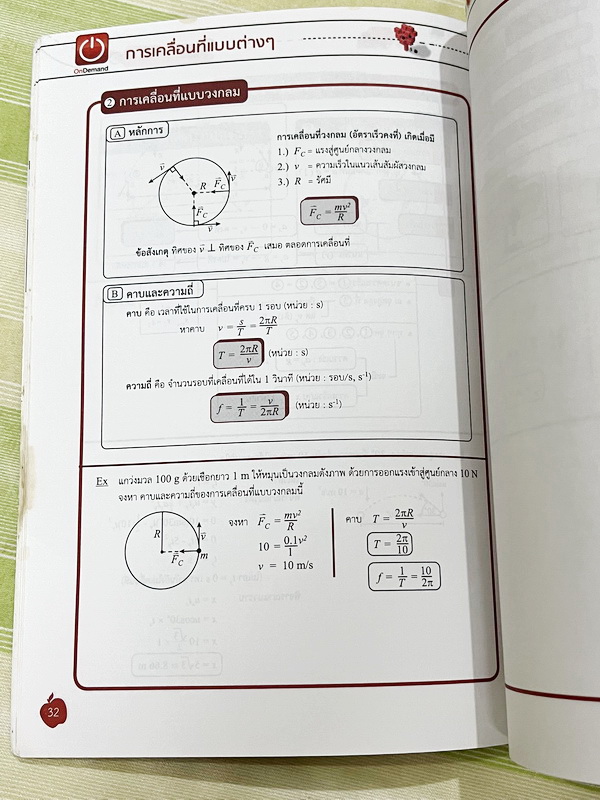 OnDemand
การเคลื่อนที่แบบต่างๆ
2 การเคลื่อนที่แบบวงกลม
A หลักการ
การเคลื่อนที่วงกลม (อัตราเร็วคงที่) เกิดเมื่อมี
1.) F_C = แรงสู่ศูนย์กลางวงกลม
2.) v = ความเร็วในแนวเส้นสัมผัสวงกลม
3.) R = รัศมี
v⃗ R F⃗_C v⃗
F⃗_C
v⃗
F⃗_C = mv²/R
ข้อสังเกตุ ทิศของ v⃗ ⊥ ทิศของ F⃗_C เสมอ ตลอดการเคลื่อนที่
B คาบและความถี่
คาบ คือ เวลาที่ใช้ในการเคลื่อนที่ครบ 1 รอบ (หน่วย : s)
หาคาบ v = s/T = 2πR/T
T = 2πR/v (หน่วย : s)
ความถี่ คือ จำนวนรอบที่เคลื่อนที่ได้ใน 1 วินาที (หน่วย : รอบ/s, s⁻¹)
f = 1/T = v/2πR (หน่วย : s⁻¹)
Ex แกว่งมวล 100 g ด้วยเชือกยาว 1 m ให้หมุนเป็นวงกลมดังภาพ ด้วยการออกแรงเข้าสู่ศูนย์กลาง 10 N
จงหา คาบและความถี่ของการเคลื่อนที่แบบวงกลมนี้
R v⃗
F⃗_C m
จงหา F⃗_C = mv²/R
10 = 0.1v²/1
v = 10 m/s
คาบ T = 2πR/v
T = 2π/10
f = 1/T = 10/2π
32